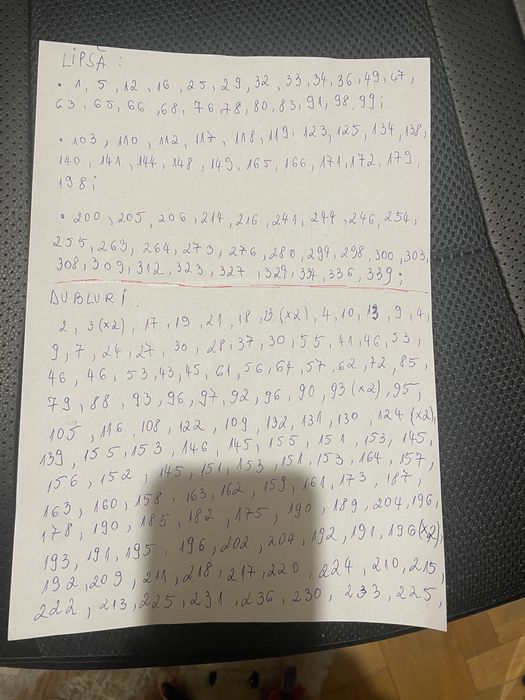 LIPSĂ:
• 1, 5, 12, 16, 25, 29, 32, 33, 34, 36, 49, 47,
63, 65, 66, 68, 76, 78, 80, 83, 91, 98, 99;
• 103, 110, 112, 117, 118, 119, 123, 125, 134, 138,
140, 141, 144, 148, 149, 165, 166, 171, 172, 179,
198;
• 200, 205, 206, 214, 216, 241, 244, 246, 254,
255, 263, 264, 273, 276, 280, 294, 298, 300, 303,
308, 309, 312, 323, 327, 329, 334, 336, 339;
DUBLURI:
2, 3(x2), 17, 19, 21, 18, 23(x2), 4, 10, 13, 9, 4,
9, 7, 24, 27, 30, 28, 37, 30, 55, 41, 46, 53,
46, 46, 53, 43, 45, 61, 56, 64, 57, 62, 72, 85,
79, 88, 93, 96, 97, 92, 96, 90, 93(x2), 95,
105, 116, 108, 122, 109, 132, 131, 130, 124(x2),
139, 155, 153, 146, 145, 155, 151, 153, 145,
156, 152, 145, 151, 153, 151, 153, 164, 157,
163, 160, 158, 163, 162, 159, 161, 173, 187,
178, 190, 185, 182, 175, 190, 189, 204, 196,
193, 191, 195, 196, 202, 204, 192, 191, 196(x2),
192, 209, 211, 218, 217, 220, 224, 210, 215,
222, 213, 225, 231, 236, 230, 233, 225,